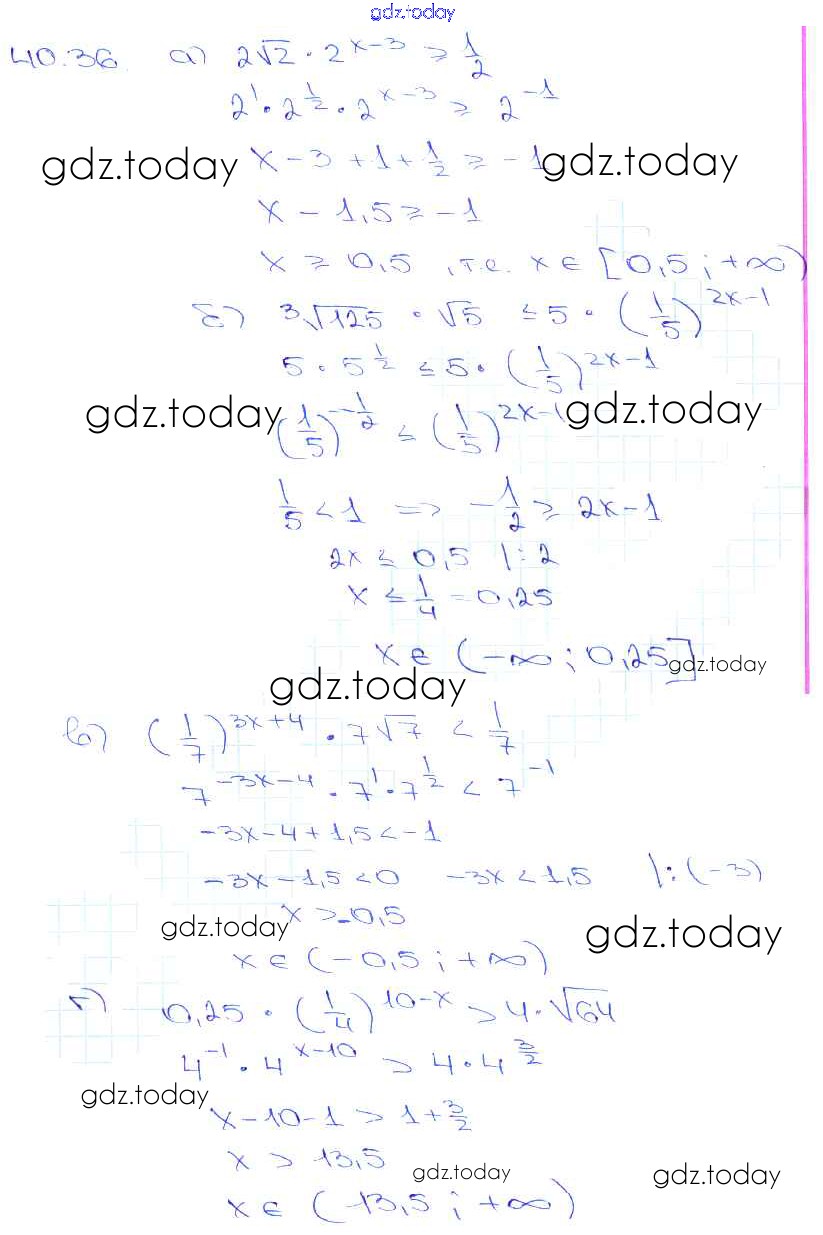 gdz.today
40.36. а) 2√2 · 2^(x-3) ≥ 1/2
2^1 · 2^(1/2) · 2^(x-3) ≥ 2^(-1)
gdz.today x - 3 + 1 + 1/2 ≥ -1 gdz.today
x - 1,5 ≥ -1
x ≥ 0,5 , т.е. x ∈ [0,5 ; +∞)
б) ³√125 · √5 ≤ 5 · (1/5)^(2x-1)
5 · 5^(1/2) ≤ 5 · (1/5)^(2x-1)
gdz.today (1/5)^(-1/2) ≤ (1/5)^(2x-1) gdz.today
1/5 < 1 => -1/2 ≥ 2x-1
2x ≤ 0,5 |:2
x ≤ 1/4 = 0,25
x ∈ (-∞ ; 0,25] gdz.today
gdz.today
в) (1/7)^(3x+4) · 7√7 < 1/7
7^(-3x-4) · 7^1 · 7^(1/2) < 7^(-1)
-3x-4+1,5 < -1
-3x-1,5 < 0 -3x < 1,5 |:(-3)
gdz.today x > -0,5 gdz.today
x ∈ (-0,5 ; +∞)
г) 0,25 · (1/4)^(10-x) > 4 · √64
4^(-1) · 4^(x-10) > 4 · 4^(3/2)
gdz.today x-10-1 > 1 + 3/2
x > 13,5 gdz.today gdz.today
x ∈ (13,5 ; +∞)